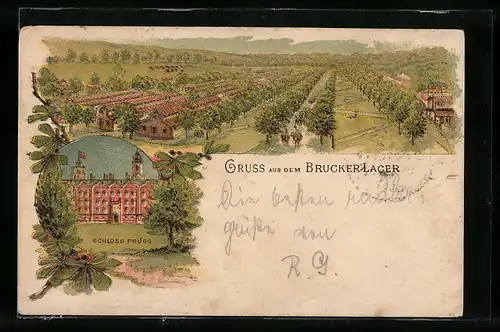 GRUSS AUS DEM BRUCKER LAGER
SCHLOSS PRUGG
Die besten
grüße von
R. G.